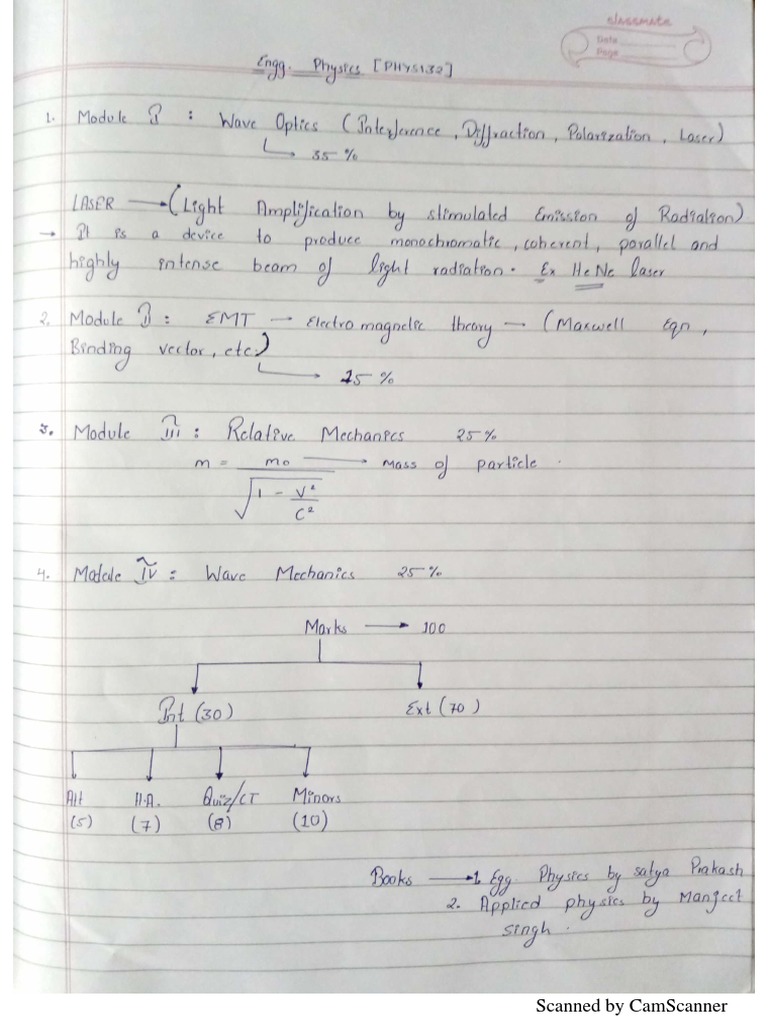 classmate
Date
Page
Engg. Physics [PHYS132]
1. Module I : Wave Optics (Interference, Diffraction, Polarization, Laser)
35 %
LASER → (Light Amplification by stimulated Emission of Radiation)
→ It is a device to produce monochromatic, coherent, parallel and
highly intense beam of light radiation. Ex HeNe laser
2. Module II : EMT → Electromagnetic theory → (Maxwell Eqn,
Binding vector, etc.)
15 %
3. Module III : Relative Mechanics 25%
m = m₀ / √(1 - V²/C²) → mass of particle.
4. Module IV : Wave Mechanics 25%
Marks → 100
Int (30) Ext (70)
Att H.A. Quiz/CT Minors
(5) (7) (8) (10)
Books → 1. Egg. Physics by Satya Prakash
2. Applied physics by Manjeet
singh.
Scanned by CamScanner